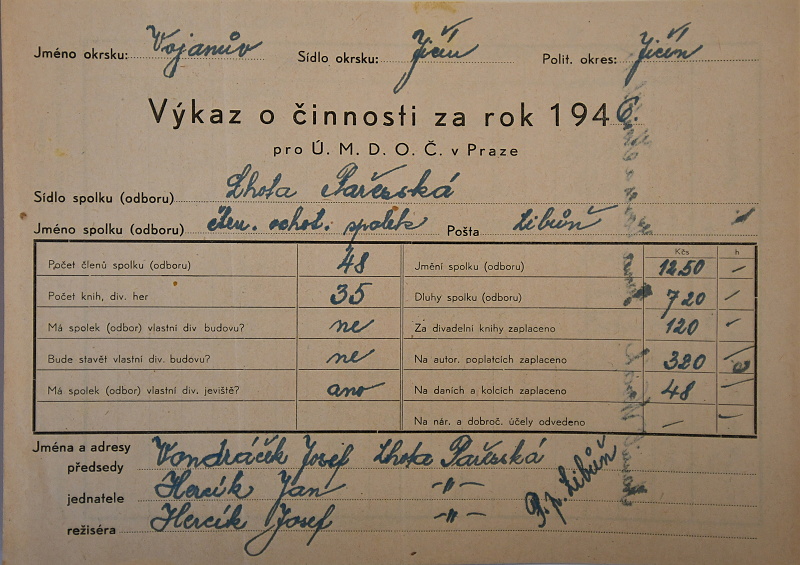 Jméno okrsku: Vojanův Sídlo okrsku: Jičín Polit. okres: Jičín
Výkaz o činnosti za rok 1946.
pro Ú. M. D. O. Č. v Praze
Sídlo spolku (odboru) Lhota Pařezská
Jméno spolku (odboru) čten. ochot. spolek Pošta Libůň
Kčs h
Počet členů spolku (odboru) 48 Jmění spolku (odboru) 1250 —
Počet knih, div. her 35 Dluhy spolku (odboru) 720 —
Má spolek (odbor) vlastní div. budovu? ne Za divadelní knihy zaplaceno 120 —
Bude stavět vlastní div. budovu? ne Na autor. poplatcích zaplaceno 320 —
Má spolek (odbor) vlastní div. jeviště? ano Na daních a kolcích zaplaceno 48 —
Na nár. a dobroč. účely odvedeno — —
Jména a adresy
předsedy Vondráčík Josef Lhota Pařezská
jednatele Hercík Jan —„—
režiséra Hercík Josef —„—
P. p. Libůň